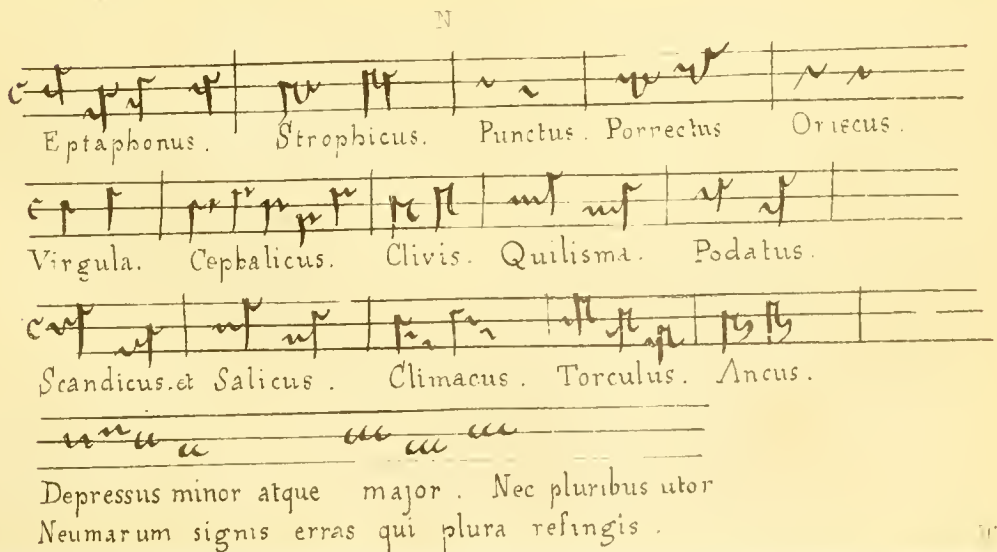 N
Eptaphonus. Strophicus. Punctus. Porrectus Oriscus.
Virgula. Cephalicus. Clivis. Quilisma. Podatus.
Scandicus.et Salicus. Climacus. Torculus. Ancus.
Depressus minor atque major. Nec pluribus utor
Neumarum signis erras qui plura refingis.